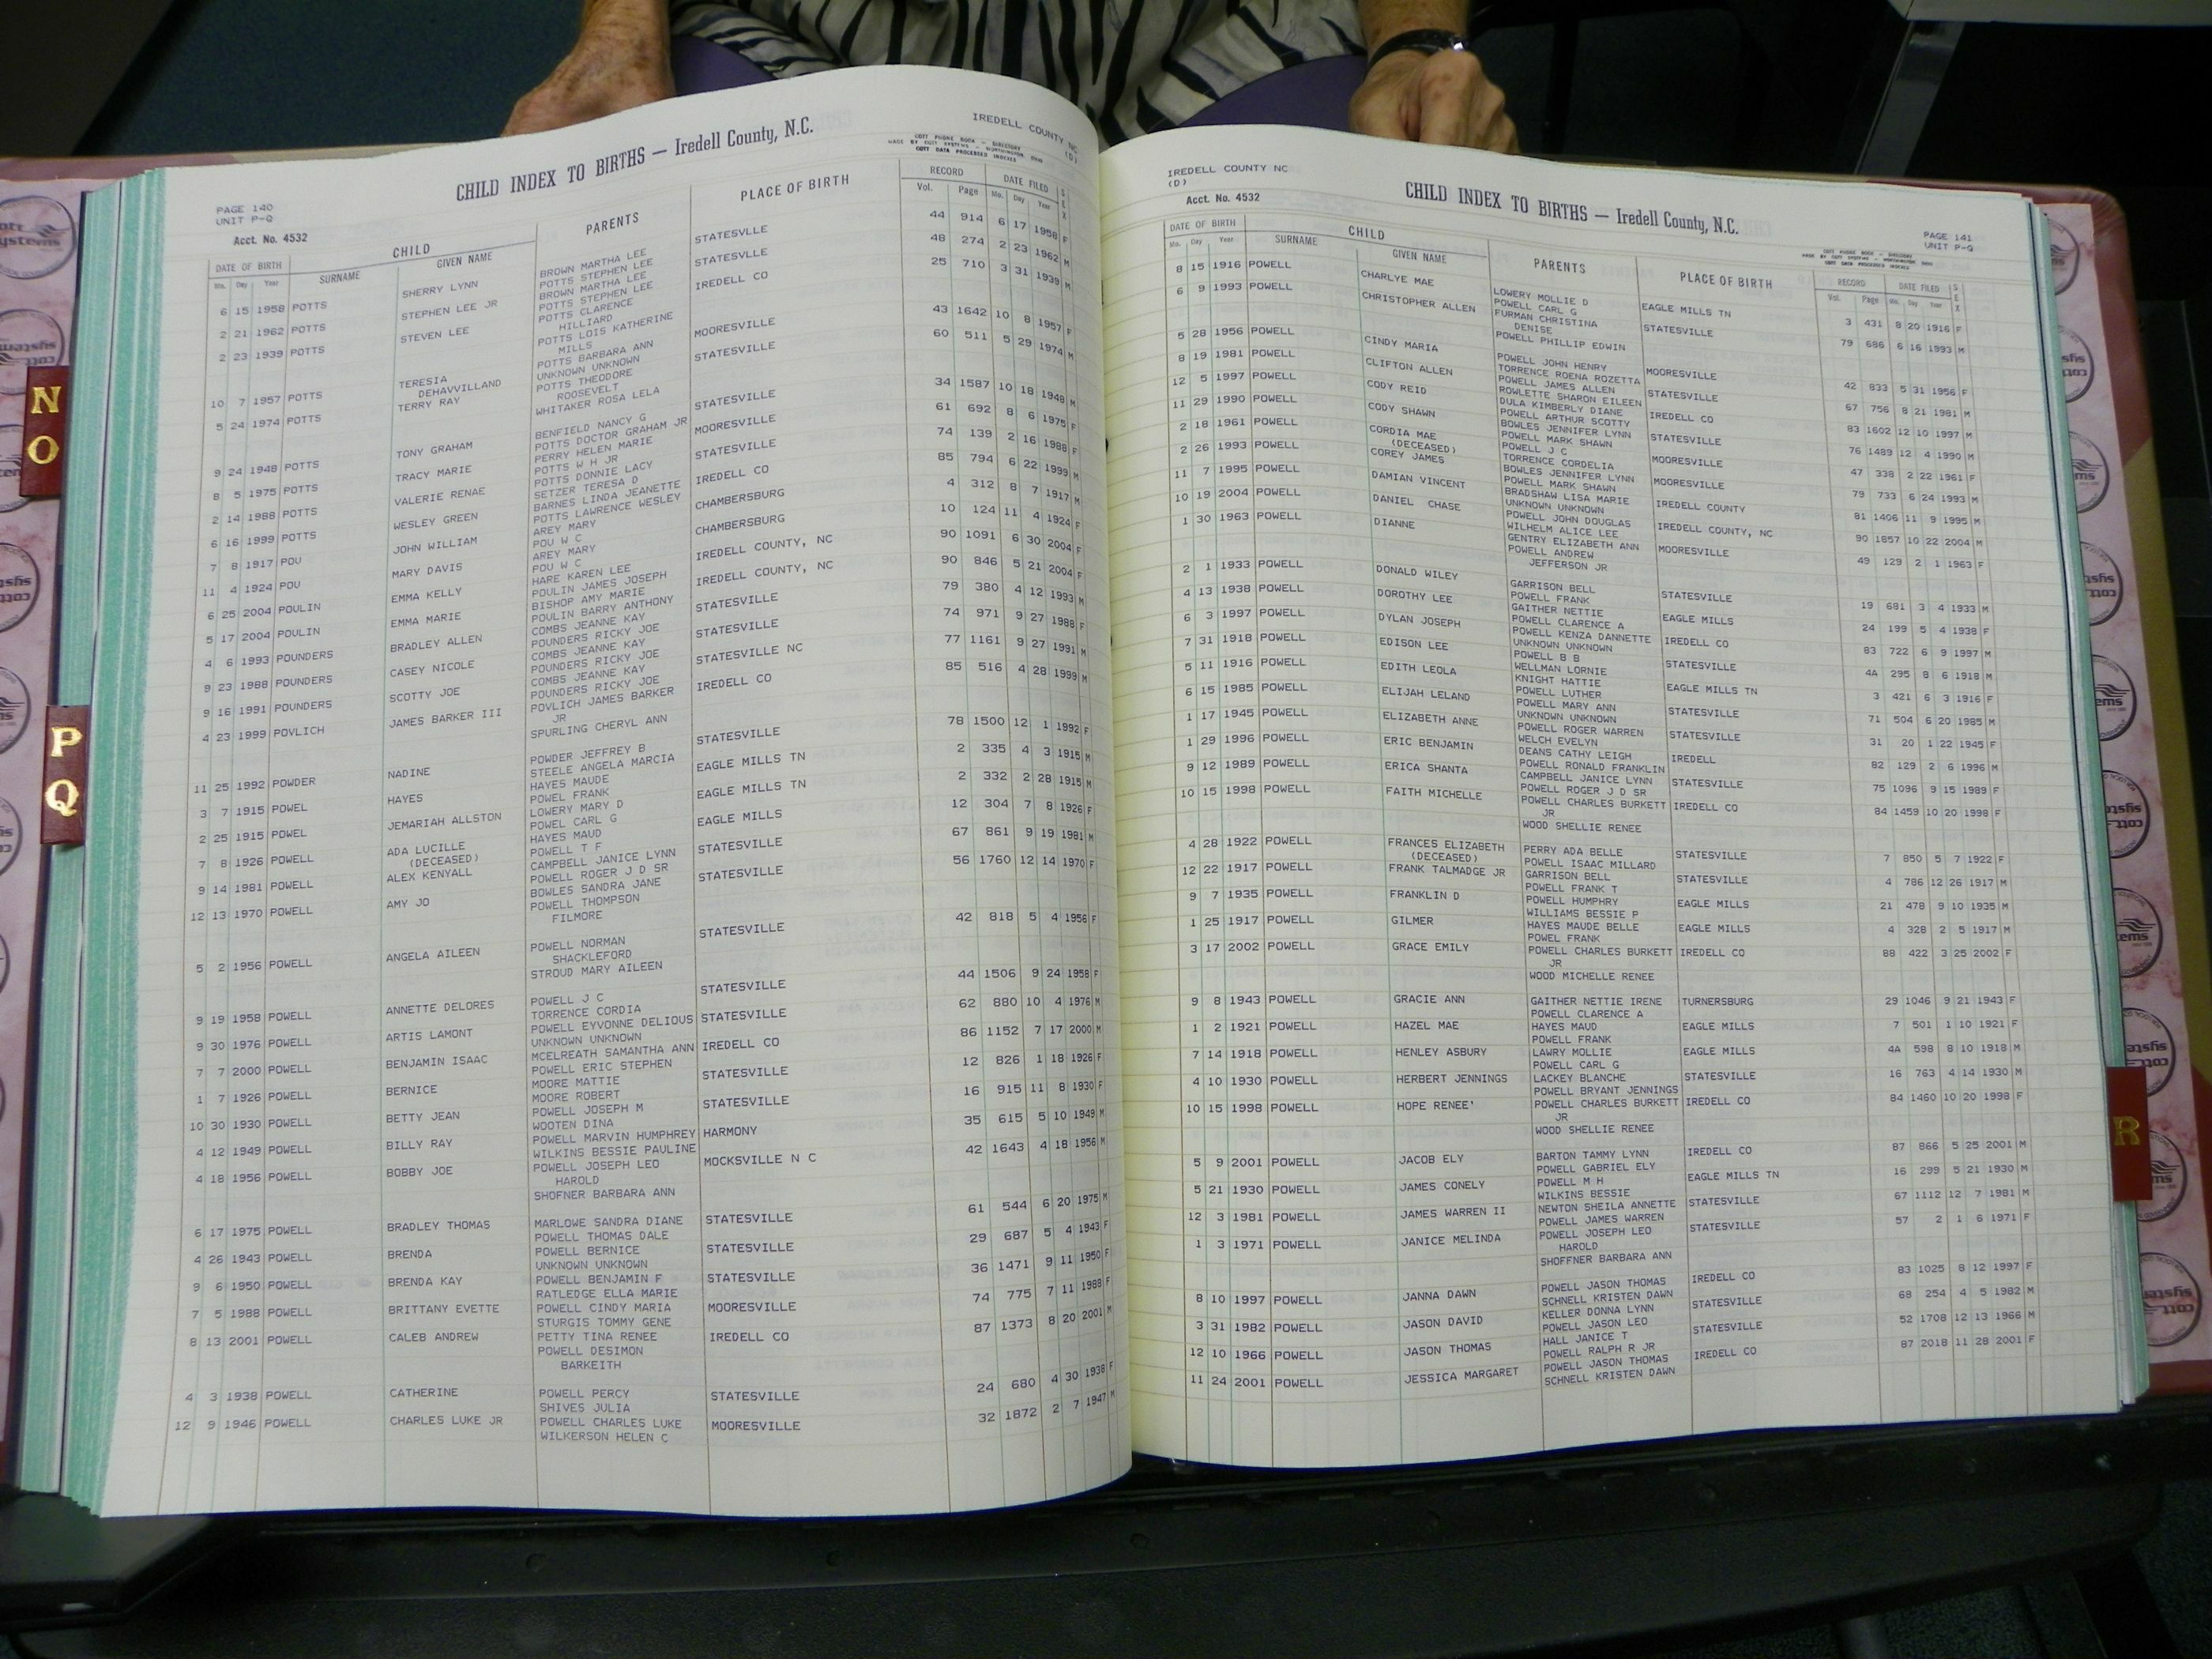 IREDELL COUNTY NC
(D)
CHILD INDEX TO BIRTHS — Iredell County, N.C.
PAGE 140
UNIT P-Q
Acct. No. 4532
COTT PHONE BOOK — DIRECTORY
MADE BY COTT SYSTEMS — WORTHINGTON, OHIO
COTT DATA PROCESSED INDEXES
DATE OF BIRTH CHILD PARENTS PLACE OF BIRTH RECORD DATE FILED SEX
Mo. Day Year SURNAME GIVEN NAME Vol. Page Mo. Day Year
6 15 1958 POTTS SHERRY LYNN BROWN MARTHA LEE STATESVLLE 44 914 6 17 1958 F
POTTS STEPHEN LEE
2 21 1962 POTTS STEPHEN LEE JR BROWN MARTHA LEE STATESVLLE 48 274 2 23 1962 M
POTTS STEPHEN LEE
2 23 1939 POTTS STEVEN LEE POTTS CLARENCE IREDELL CO 25 710 3 31 1939 M
HILLIARD
POTTS LOIS KATHERINE
MILLS
10 7 1957 POTTS TERESIA POTTS BARBARA ANN MOORESVILLE 43 1642 10 8 1957 F
DEHAVVILLAND UNKNOWN UNKNOWN
5 24 1974 POTTS TERRY RAY POTTS THEODORE STATESVILLE 60 511 5 29 1974 M
ROOSEVELT
WHITAKER ROSA LELA
9 24 1948 POTTS TONY GRAHAM BENFIELD NANCY G STATESVILLE 34 1587 10 18 1948 M
POTTS DOCTOR GRAHAM JR
8 5 1975 POTTS TRACY MARIE PERRY HELEN MARIE MOORESVILLE 61 692 8 6 1975 F
POTTS W H JR
2 14 1988 POTTS VALERIE RENAE POTTS DONNIE LACY STATESVILLE 74 139 2 16 1988 F
SETZER TERESA D
6 16 1999 POTTS WESLEY GREEN BARNES LINDA JEANETTE IREDELL CO 85 794 6 22 1999 M
POTTS LAWRENCE WESLEY
7 8 1917 POU JOHN WILLIAM AREY MARY CHAMBERSBURG 4 312 8 7 1917 M
POU W C
11 4 1924 POU MARY DAVIS AREY MARY CHAMBERSBURG 10 124 11 4 1924 F
POU W C
6 25 2004 POULIN EMMA KELLY HARE KAREN LEE IREDELL COUNTY, NC 90 1091 6 30 2004 F
POULIN JAMES JOSEPH
5 17 2004 POULIN EMMA MARIE BISHOP AMY MARIE IREDELL COUNTY, NC 90 846 5 21 2004 F
POULIN BARRY ANTHONY
4 6 1993 POUNDERS BRADLEY ALLEN COMBS JEANNE KAY STATESVILLE 79 380 4 12 1993 M
POUNDERS RICKY JOE
9 23 1988 POUNDERS CASEY NICOLE COMBS JEANNE KAY STATESVILLE 74 971 9 27 1988 F
POUNDERS RICKY JOE
9 16 1991 POUNDERS SCOTTY JOE COMBS JEANNE KAY STATESVILLE NC 77 1161 9 27 1991 M
POUNDERS RICKY JOE
4 23 1999 POVLICH JAMES BARKER III POVLICH JAMES BARKER IREDELL CO 85 516 4 28 1999 M
JR
SPURLING CHERYL ANN
11 25 1992 POWDER NADINE POWDER JEFFREY B STATESVILLE 78 1500 12 1 1992 F
STEELE ANGELA MARCIA
3 7 1915 POWEL HAYES HAYES MAUDE EAGLE MILLS TN 2 335 4 3 1915 M
POWEL FRANK
2 25 1915 POWEL JEMARIAH ALLSTON LOWERY MARY D EAGLE MILLS TN 2 332 2 28 1915 M
POWEL CARL G
7 8 1926 POWELL ADA LUCILLE HAYES MAUD EAGLE MILLS 12 304 7 8 1926 F
(DECEASED) POWELL T F
9 14 1981 POWELL ALEX KENYALL CAMPBELL JANICE LYNN STATESVILLE 67 861 9 19 1981 M
POWELL ROGER J D SR
12 13 1970 POWELL AMY JO BOWLES SANDRA JANE STATESVILLE 56 1760 12 14 1970 F
POWELL THOMPSON
FILMORE
5 2 1956 POWELL ANGELA AILEEN POWELL NORMAN STATESVILLE 42 818 5 4 1956 F
SHACKLEFORD
STROUD MARY AILEEN
9 19 1958 POWELL ANNETTE DELORES POWELL J C STATESVILLE 44 1506 9 24 1958 F
TORRENCE CORDIA
9 30 1976 POWELL ARTIS LAMONT POWELL EYVONNE DELIOUS STATESVILLE 62 880 10 4 1976 M
UNKNOWN UNKNOWN
7 7 2000 POWELL BENJAMIN ISAAC MCELREATH SAMANTHA ANN IREDELL CO 86 1152 7 17 2000 M
POWELL ERIC STEPHEN
1 7 1926 POWELL BERNICE MOORE MATTIE STATESVILLE 12 826 1 18 1926 F
MOORE ROBERT
10 30 1930 POWELL BETTY JEAN POWELL JOSEPH M STATESVILLE 16 915 11 8 1930 F
WOOTEN DINA
4 12 1949 POWELL BILLY RAY POWELL MARVIN HUMPHREY HARMONY 35 615 5 10 1949 M
WILKINS BESSIE PAULINE
4 18 1956 POWELL BOBBY JOE POWELL JOSEPH LEO MOCKSVILLE N C 42 1643 4 18 1956 M
HAROLD
SHOFNER BARBARA ANN
6 17 1975 POWELL BRADLEY THOMAS MARLOWE SANDRA DIANE STATESVILLE 61 544 6 20 1975 M
POWELL THOMAS DALE
4 26 1943 POWELL BRENDA POWELL BERNICE STATESVILLE 29 687 5 4 1943 F
UNKNOWN UNKNOWN
9 6 1950 POWELL BRENDA KAY POWELL BENJAMIN F STATESVILLE 36 1471 9 11 1950 F
RATLEDGE ELLA MARIE
7 5 1988 POWELL BRITTANY EVETTE POWELL CINDY MARIA MOORESVILLE 74 775 7 11 1988 F
STURGIS TOMMY GENE
8 13 2001 POWELL CALEB ANDREW PETTY TINA RENEE IREDELL CO 87 1373 8 20 2001 M
POWELL DESIMON
BARKEITH
4 3 1938 POWELL CATHERINE POWELL PERCY STATESVILLE 24 680 4 30 1938 F
SHIVES JULIA
12 9 1946 POWELL CHARLES LUKE JR POWELL CHARLES LUKE MOORESVILLE 32 1872 2 7 1947 M
WILKERSON HELEN C
IREDELL COUNTY NC
(D)
Acct. No. 4532
CHILD INDEX TO BIRTHS — Iredell County, N.C.
PAGE 141
UNIT P-Q
COTT PHONE BOOK — DIRECTORY
MADE BY COTT SYSTEMS — WORTHINGTON, OHIO
COTT DATA PROCESSED INDEXES
DATE OF BIRTH CHILD PARENTS PLACE OF BIRTH RECORD DATE FILED SEX
Mo. Day Year SURNAME GIVEN NAME Vol. Page Mo. Day Year
8 15 1916 POWELL CHARLYE MAE LOWERY MOLLIE D EAGLE MILLS TN 3 431 8 20 1916 F
POWELL CARL G
6 9 1993 POWELL CHRISTOPHER ALLEN FURMAN CHRISTINA STATESVILLE 79 686 6 16 1993 M
DENISE
POWELL PHILLIP EDWIN
5 28 1956 POWELL CINDY MARIA POWELL JOHN HENRY MOORESVILLE 42 833 5 31 1956 F
TORRENCE ROENA ROZETTA
8 19 1981 POWELL CLIFTON ALLEN POWELL JAMES ALLEN STATESVILLE 67 756 8 21 1981 M
ROWLETTE SHARON EILEEN
12 5 1997 POWELL CODY REID DULA KIMBERLY DIANE IREDELL CO 83 1602 12 10 1997 M
POWELL ARTHUR SCOTTY
11 29 1990 POWELL CODY SHAWN BOWLES JENNIFER LYNN STATESVILLE 76 1489 12 4 1990 M
POWELL MARK SHAWN
2 18 1961 POWELL CORDIA MAE POWELL J C MOORESVILLE 47 338 2 22 1961 F
(DECEASED) TORRENCE CORDELIA
2 26 1993 POWELL COREY JAMES BOWLES JENNIFER LYNN MOORESVILLE 79 733 6 24 1993 M
POWELL MARK SHAWN
11 7 1995 POWELL DAMIAN VINCENT BRADSHAW LISA MARIE IREDELL COUNTY 81 1406 11 9 1995 M
UNKNOWN UNKNOWN
10 19 2004 POWELL DANIEL CHASE POWELL JOHN DOUGLAS IREDELL COUNTY, NC 90 1857 10 22 2004 M
WILHELM ALICE LEE
1 30 1963 POWELL DIANNE GENTRY ELIZABETH ANN MOORESVILLE 49 129 2 1 1963 F
POWELL ANDREW
JEFFERSON JR
2 1 1933 POWELL DONALD WILEY GARRISON BELL STATESVILLE 19 681 3 4 1933 M
POWELL FRANK
4 13 1938 POWELL DOROTHY LEE GAITHER NETTIE EAGLE MILLS 24 199 5 4 1938 F
POWELL CLARENCE A
6 3 1997 POWELL DYLAN JOSEPH POWELL KENZA DANNETTE IREDELL CO 83 722 6 9 1997 M
UNKNOWN UNKNOWN
7 31 1918 POWELL EDISON LEE POWELL B B STATESVILLE 4A 295 8 6 1918 M
WELLMAN LORNIE
5 11 1916 POWELL EDITH LEOLA KNIGHT HATTIE EAGLE MILLS TN 3 421 6 3 1916 F
POWELL LUTHER
6 15 1985 POWELL ELIJAH LELAND POWELL MARY ANN STATESVILLE 71 504 6 20 1985 M
UNKNOWN UNKNOWN
1 17 1945 POWELL ELIZABETH ANNE POWELL ROGER WARREN STATESVILLE 31 20 1 22 1945 F
WELCH EVELYN
1 29 1996 POWELL ERIC BENJAMIN DEANS CATHY LEIGH IREDELL 82 129 2 6 1996 M
POWELL RONALD FRANKLIN
9 12 1989 POWELL ERICA SHANTA CAMPBELL JANICE LYNN STATESVILLE 75 1096 9 15 1989 F
POWELL ROGER J D SR
10 15 1998 POWELL FAITH MICHELLE POWELL CHARLES BURKETT IREDELL CO 84 1459 10 20 1998 F
JR
WOOD SHELLIE RENEE
4 28 1922 POWELL FRANCES ELIZABETH PERRY ADA BELLE STATESVILLE 7 850 5 7 1922 F
(DECEASED) POWELL ISAAC MILLARD
12 22 1917 POWELL FRANK TALMADGE JR GARRISON BELL STATESVILLE 4 786 12 26 1917 M
POWELL FRANK T
9 7 1935 POWELL FRANKLIN D POWELL HUMPHRY EAGLE MILLS 21 478 9 10 1935 M
WILLIAMS BESSIE P
1 25 1917 POWELL GILMER HAYES MAUDE BELLE EAGLE MILLS 4 328 2 5 1917 M
POWEL FRANK
3 17 2002 POWELL GRACE EMILY POWELL CHARLES BURKETT IREDELL CO 88 422 3 25 2002 F
JR
WOOD MICHELLE RENEE
9 8 1943 POWELL GRACIE ANN GAITHER NETTIE IRENE TURNERSBURG 29 1046 9 21 1943 F
POWELL CLARENCE A
1 2 1921 POWELL HAZEL MAE HAYES MAUD EAGLE MILLS 7 501 1 10 1921 F
POWELL FRANK
7 14 1918 POWELL HENLEY ASBURY LAWRY MOLLIE EAGLE MILLS 4A 598 8 10 1918 M
POWELL CARL G
4 10 1930 POWELL HERBERT JENNINGS LACKEY BLANCHE STATESVILLE 16 763 4 14 1930 M
POWELL BRYANT JENNINGS
10 15 1998 POWELL HOPE RENEE' POWELL CHARLES BURKETT IREDELL CO 84 1460 10 20 1998 F
JR
WOOD SHELLIE RENEE
5 9 2001 POWELL JACOB ELY BARTON TAMMY LYNN IREDELL CO 87 866 5 25 2001 M
POWELL GABRIEL ELY
5 21 1930 POWELL JAMES CONELY POWELL M H EAGLE MILLS TN 16 299 5 21 1930 M
WILKINS BESSIE
12 3 1981 POWELL JAMES WARREN II NEWTON SHEILA ANNETTE STATESVILLE 67 1112 12 7 1981 M
POWELL JAMES WARREN
1 3 1971 POWELL JANICE MELINDA POWELL JOSEPH LEO STATESVILLE 57 2 1 6 1971 F
HAROLD
SHOFFNER BARBARA ANN
8 10 1997 POWELL JANNA DAWN POWELL JASON THOMAS IREDELL CO 83 1025 8 12 1997 F
SCHNELL KRISTEN DAWN
3 31 1982 POWELL JASON DAVID KELLER DONNA LYNN STATESVILLE 68 254 4 5 1982 M
POWELL JASON LEO
12 10 1966 POWELL JASON THOMAS HALL JANICE T STATESVILLE 52 1708 12 13 1966 M
POWELL RALPH R JR
11 24 2001 POWELL JESSICA MARGARET POWELL JASON THOMAS IREDELL CO 87 2018 11 28 2001 F
SCHNELL KRISTEN DAWN
N
O
P
Q
R